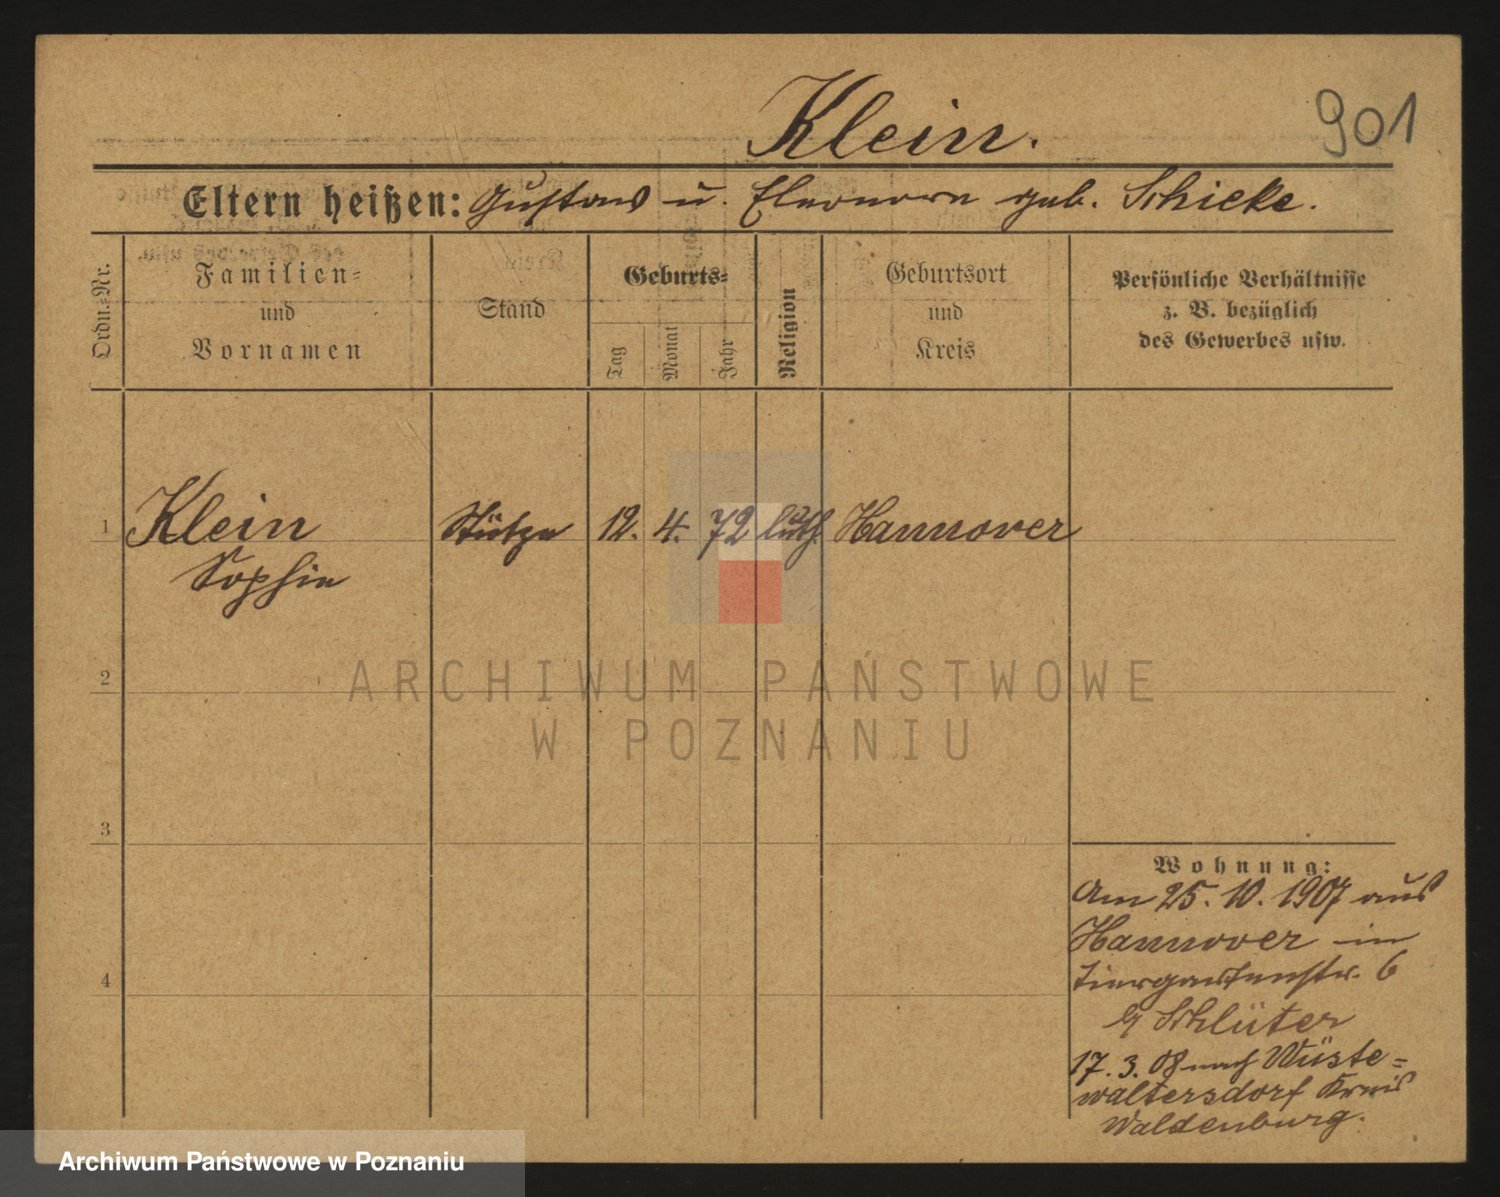 Klein.
901
Eltern heißen: Gustav u. Eleonore geb. Schicke.
Ordn.-Nr.
Familien-
und
Vornamen
Stand
Geburts-
Tag
Monat
Jahr
Religion
Geburtsort
und
Kreis
Persönliche Verhältnisse
z. B. bezüglich
des Gewerbes usw.
1 Klein Stütze 12. 4. 72 luth. Hannover
Sophie
2
3
4
Wohnung:
Am 25. 10. 1907 aus
Hannover in
Tiergartenstr. 6
b/ Schlüter
17. 3. 08 nach Wüste=
waltersdorf Kreis
Waldenburg.
ARCHIWUM PAŃSTWOWE
W POZNANIU
Archiwum Państwowe w Poznaniu